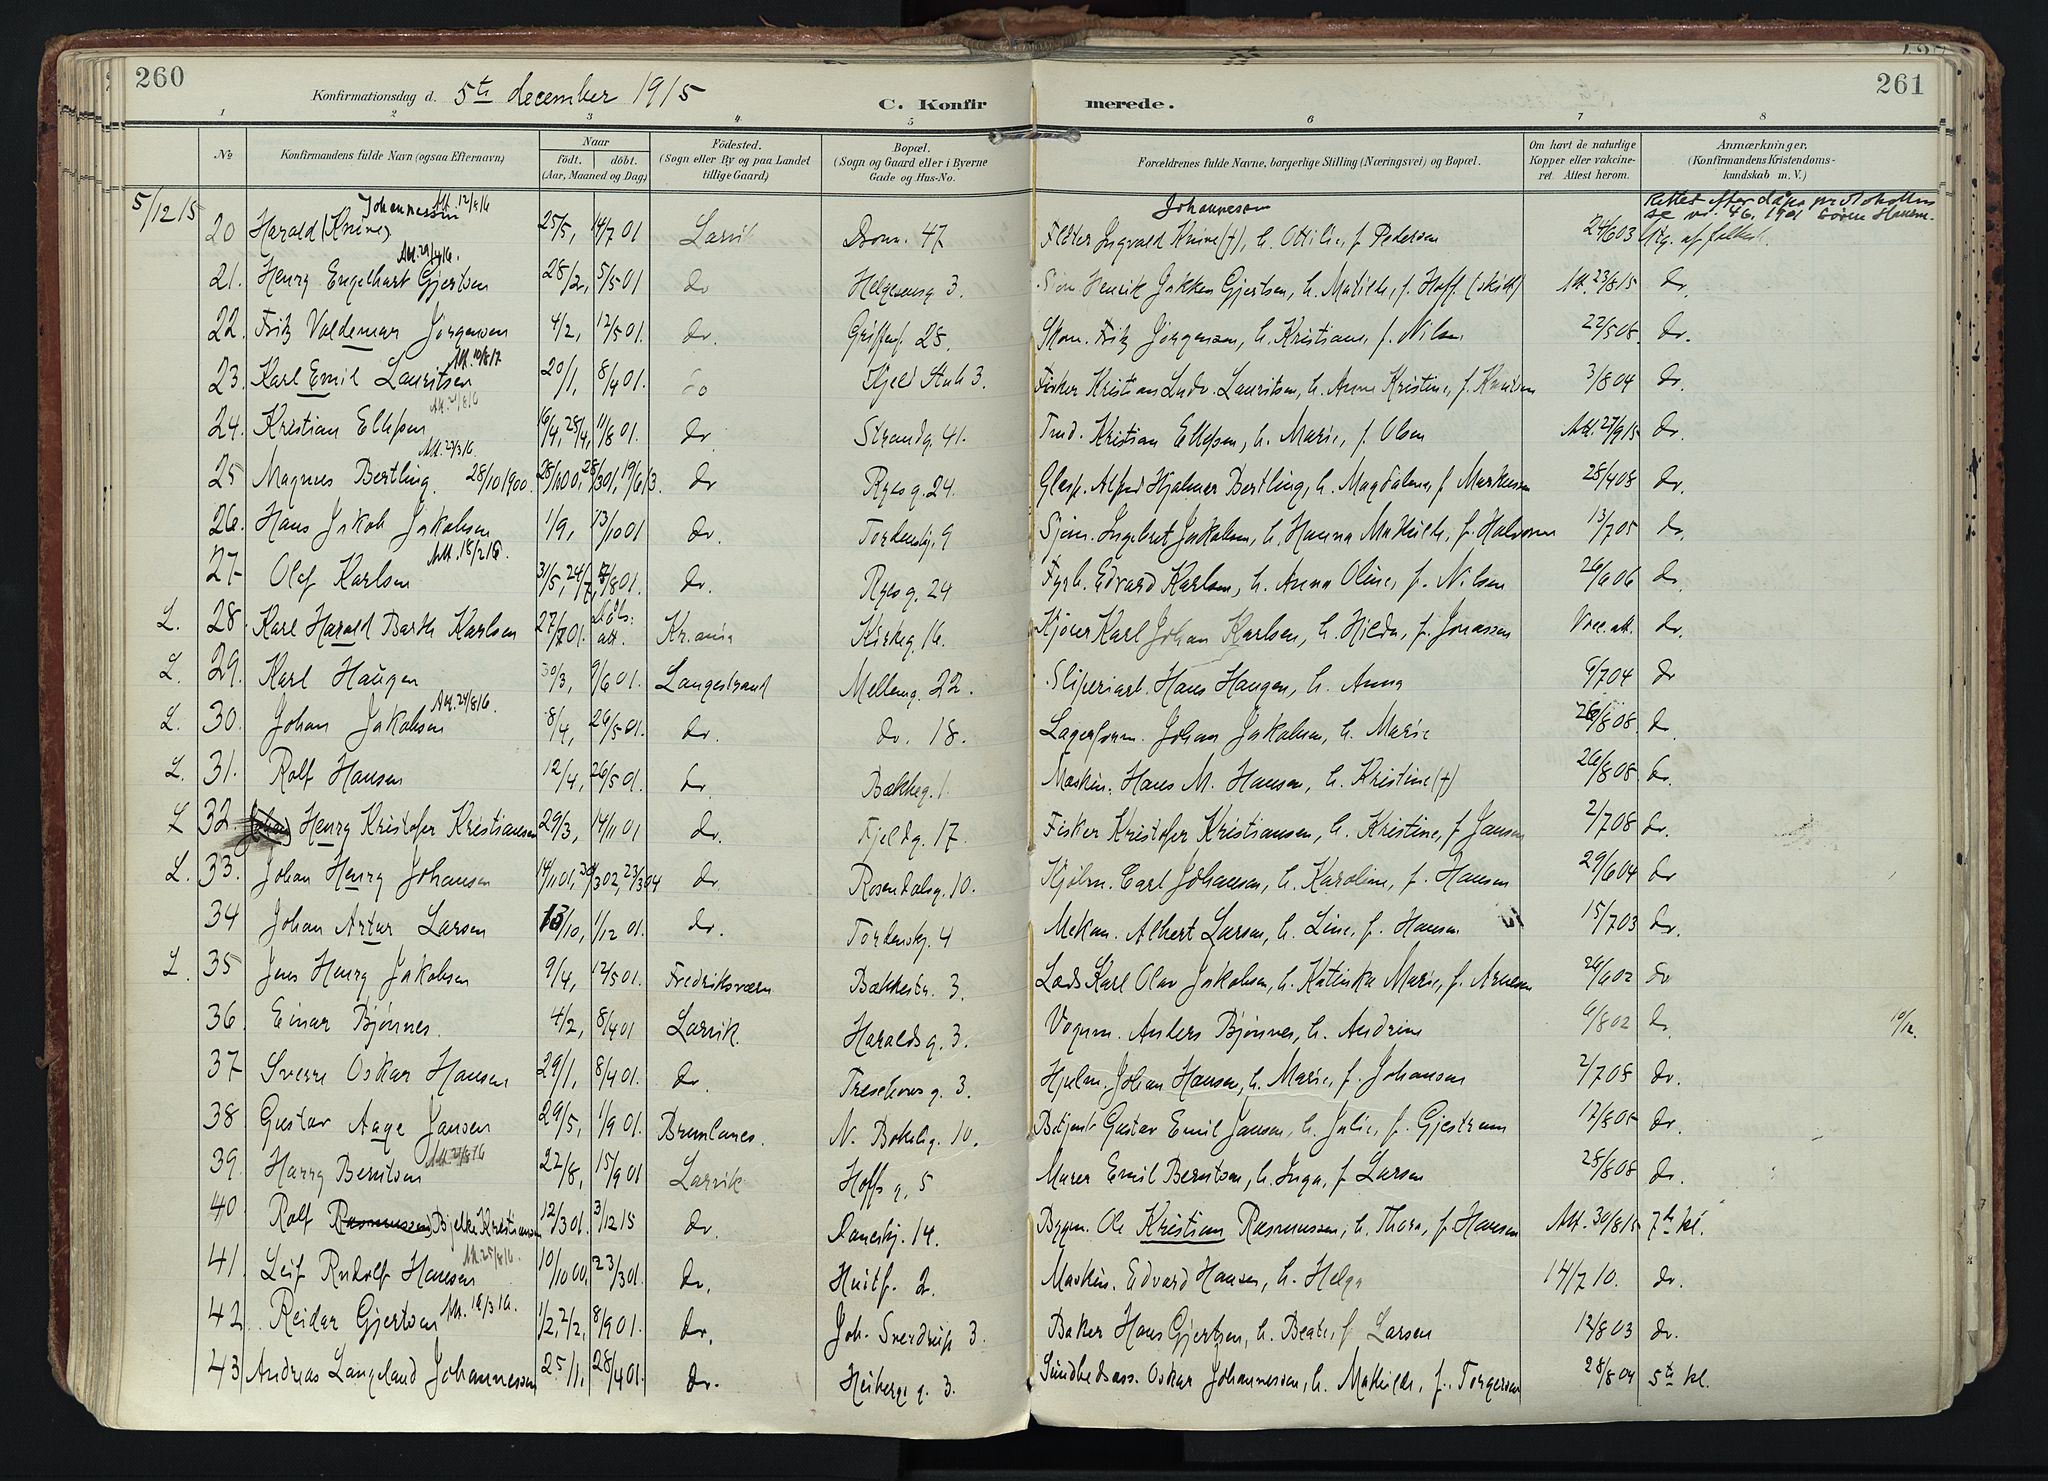 260
Konfirmationsdag d. 5te december 1915
C. Konfir
merede.
261
1 2 3 4 5 6 7 8
No
Konfirmandens fulde Navn (ogsaa Efternavn)
Naar
født. døbt.
(Aar, Maaned og Dag)
Fødested.
(Sogn eller By og paa Landet
tillige Gaard)
Bopæl.
(Sogn og Gaard eller i Byerne
Gade og Hus-No.
Forældrenes fulde Navne, borgerlige Stilling (Næringsvei) og Bopæl.
Om havt de naturlige
Kopper eller vakcine-
ret. Attest herom.
Anmærkninger.
(Konfirmandens Kristendoms-
kundskab m. V.)
5/12 15
Johannessen Att. 12/8 16 Johannessen
20 Harald (Knive) 25/5, 14/7 01 Larvik Dronn. 47 Ingvald Knive (+), h. Ottilie, f. Pedersen 24/6 03 Utg. af folkesk.
21. Henry Engelhart Gjertsen 28/2, 5/5 01 do Helgesensg 3. Henrik Gjertsen, h. Matilde, f. Hoff (skilt) Att. 23/8 15 do.
22. Fritz Valdemar Jørgensen 4/2, 12/5 01. do. 28. Skom. Fritz Jørgensen, h. Kristiane, f. Nilsen 22/5 08. do.
Att. 10/8 17
23. Karl Emil Lauritsen 20/1, 8/4 01. do 3. Fisker Kristian Ludv. Lauritsen, h. Anne Kristine, f. Knudsen 3/8 04 do.
24. Kristian Ellefsen 16/4, 28/4, 11/8 01. do Strandg. 41. Kristian Ellefsen, h. Marie, f. Olsen Att. 27/9 15 do.
25 Magnus Bertling. 28/10 1900. 28/10 00, 19/6 13. do Ryesg. 24. Glasp. Alfred Hjalmer Bertling, h. Magdalena, f. Markussen 28/4 08 do.
26. Hans Jakob Jakobsen 1/9, 13/10 01 do. Tordenskj. 9 Sjøm. Ingebret Jakobsen, h. Hanna Mathilde, f. Halvorsen 13/7 05 do.
Att. 18/2 18.
27 Olaf Karlsen 31/5, 24/7, 8 01. do. Ryesg. 24 Fyrb. Edvard Karlsen, h. Anna Oline, f. Nilsen 26/6 06 do
L. 28. Karl Harald Barth Karlsen 27/7 01. Dåbs: att. Kr.ania Kirkeg. 16. Kjører Karl Johan Karlsen, h. Hilda, f. Jonassen Vacc. att. do.
L. 29. Karl Haugen 30/3, 9/6 01. Langestrand Mellemg. 22. Sliperiarb. Hans Haugen, h. Anna 6/7 04 do
L. 30. Johan Jakobsen Att. 24/8 16. 8/4, 26/5 01. do. do. 18. Lagerform. Johan Jakobsen, h. Marie 26/8 08. do
L. 31. Rolf Hansen 12/4, 26/5 01. do. Bakkeg. 1. Maskin. Hans M. Hansen, h. Kristine (+) 26/8 08. do.
L 32 Henry Kristofer Kristiansen 29/3, 14/11 01 do. Fjeldg. 17. Fisker Kristofer Kristiansen, h. Kristine, f. Jansen 2/7 08 do.
L. 33. Johan Henry Johansen 14/11 01, 30/3 02, 23/3 04 do. Rosendalsg. 10. Kjølm. Carl Johansen, h. Karoline, f. Hansen 29/6 04 do
34 Johan Artur Larsen 13/10, 1/12 01. do. Tordenskj. 4 Mekan. Albert Larsen, h. Line, f. Hansen 15/7 03 do.
L. 35 Jens Henry Jakobsen 9/4, 12/5 01. Fredriksværn Bakkestr. 3. Lods Karl Olav Jakobsen, h. Katinka Marie, f. Arnesen 26/6 02 do
36. Einar Bjønnes. 4/2, 8/4 01 Larvik. Haraldsg. 3. Vognm. Anders Bjønnes, h. Andrine 6/8 02 do. 10/12.
37 Sverre Oskar Hansen 29/1, 8/4 01. do. Treschowsg. 3. Hjulm. Johan Hansen, h. Marie, f. Johansen 2/7 08 do.
38 Gustav Aage Jansen 29/5, 1/9 01. Brunlanes. N. Bøkelig. 10. Betjent Gustav Emil Jansen, h. Julie, f. Gjestrum 17/8 05 do.
39. Harry Berntsen 22/8, 15/9 01 Larvik Hoffs g. 5 Murer Emil Berntsen, h. Inga, f. Larsen 28/8 08 do.
40. Rolf (Rasmussen) Bjelke Kristiansen 12/3 01. 3/12 15 do. Daneskj. 14. Bygm. Ole Kristian Rasmussen, h. Thora, f. Hansen Att. 30/8 15 7de kl.
Att. 25/8 16.
41. Leif Rudolf Hansen 10/10 00, 23/3 01. do. Huitf. 2. Maskin. Edvard Hansen, h. Helga 14/7 10. do.
42. Reidar Gjertsen Att. 18/3 16. 1/2, 2/2, 8/9 01. do. Joh. Sverdrups 3. Baker Hans Gjertsen, h. Beate, f. Larsen 12/8 03 do.
43 Andreas Langeland Johannessen 25/1, 28/4 01. do. Heibergs g. 3. Sundhedsass. Oskar Johannessen, h. Mathilde, f. Torgersen 28/8 04 5te kl.